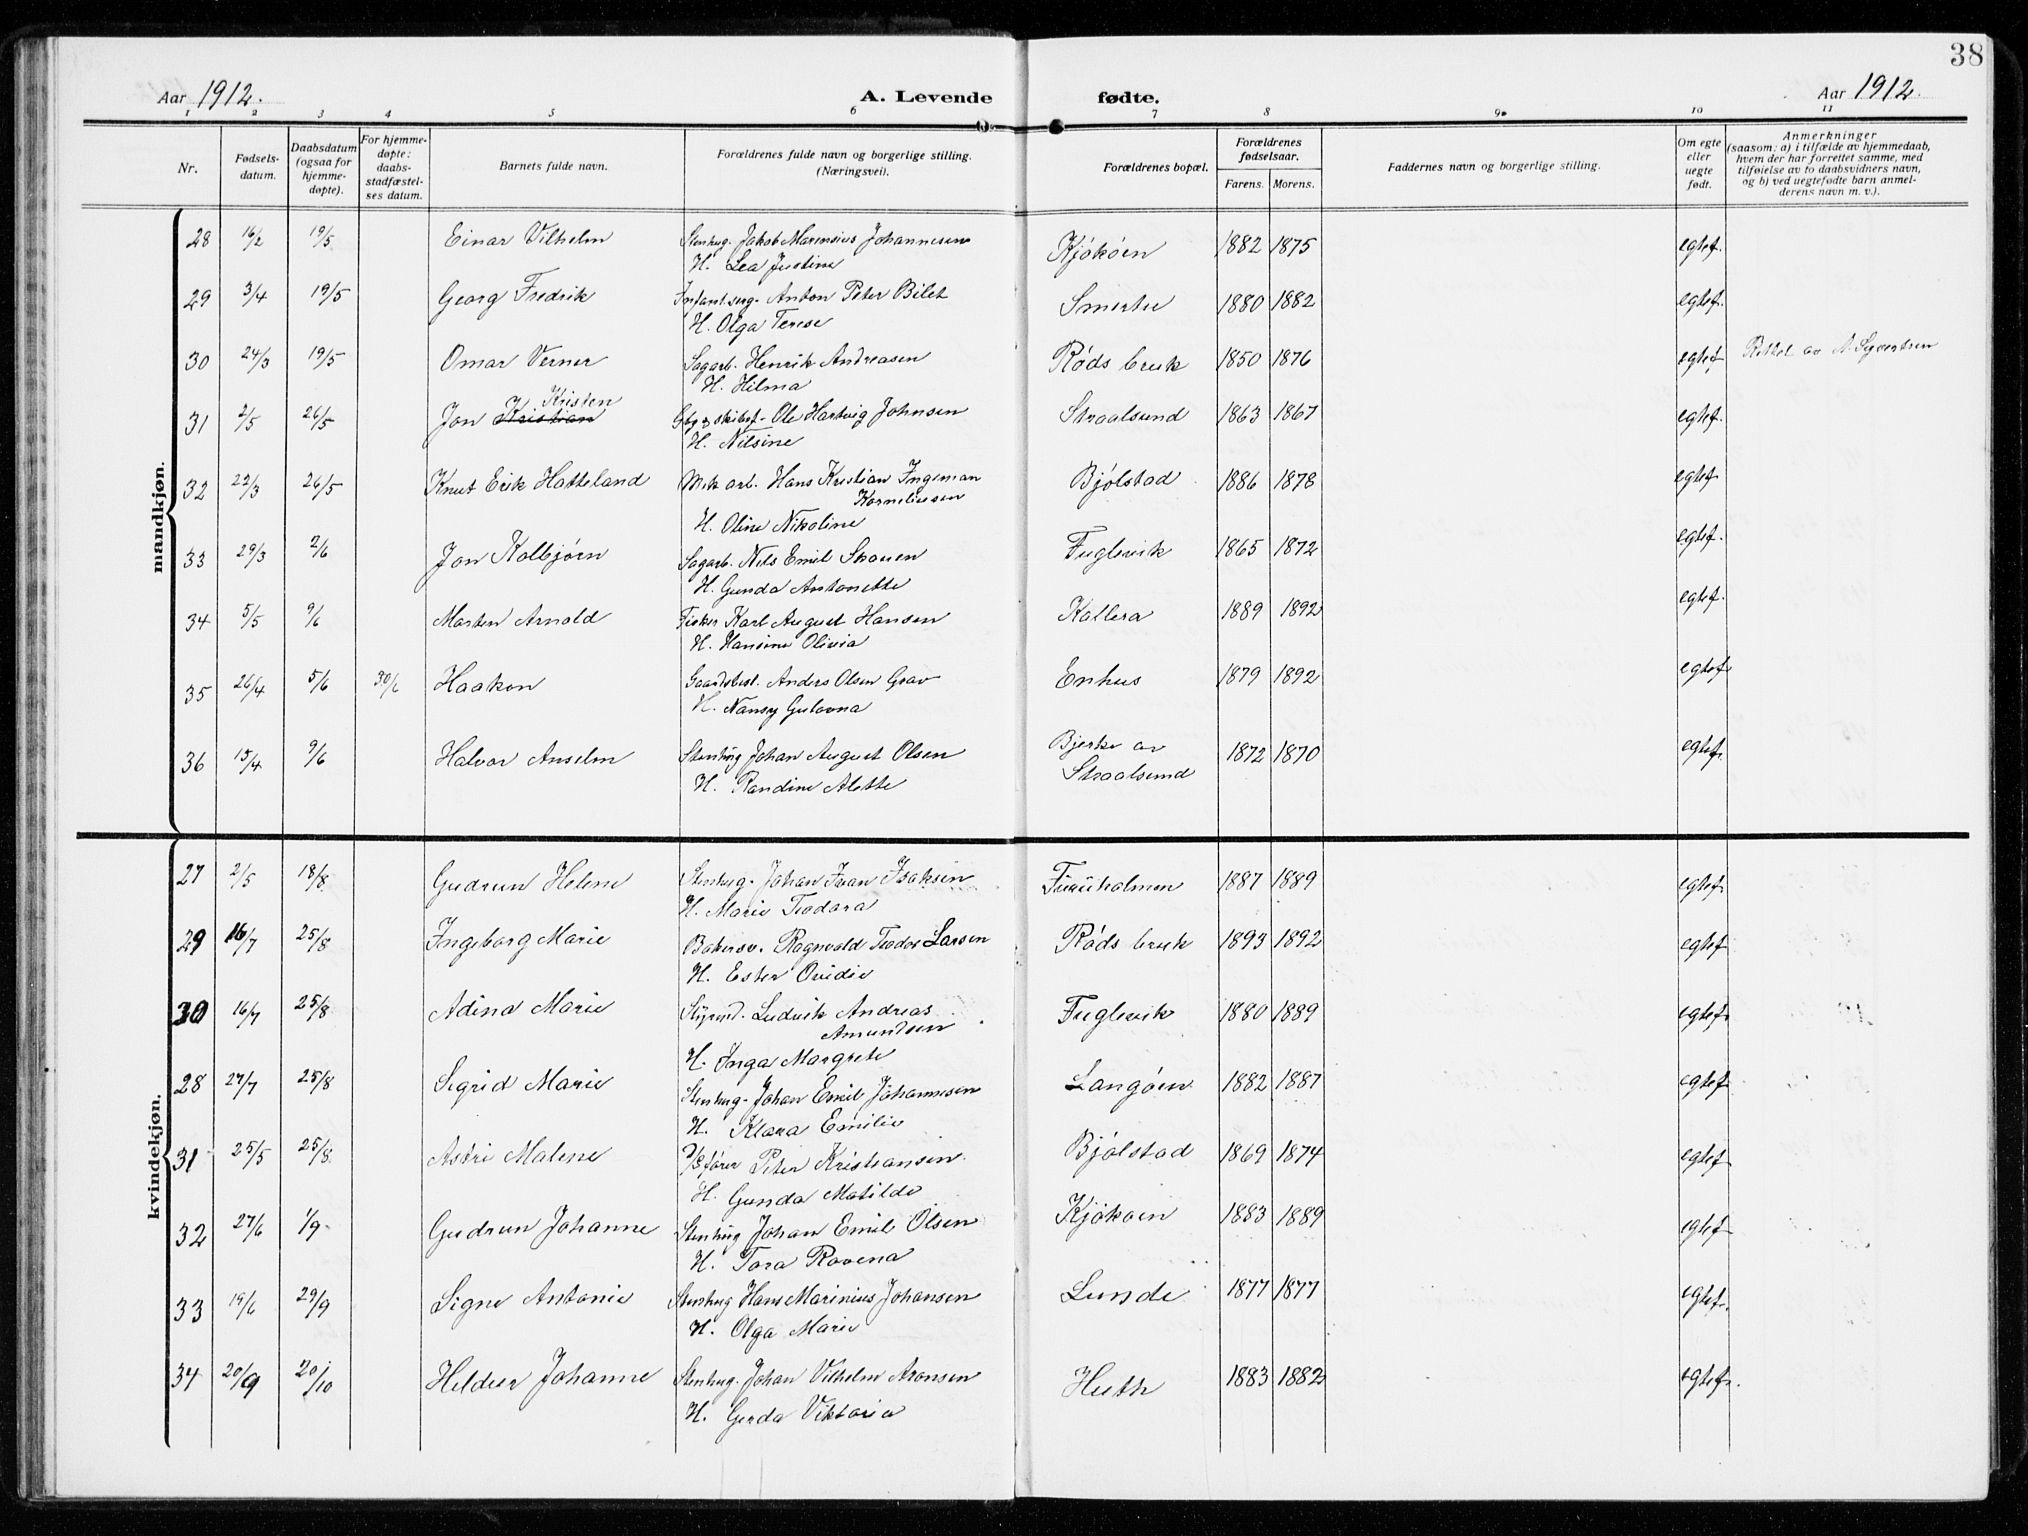 38
Aar 1912. A. Levende fødte. Aar 1912.
1 2 3 4 5 6 7 8 9 10 11
Nr. Fødselsdatum. Daabsdatum (ogsaa for hjemmedøpte). For hjemmedøpte: daabsstadfæstelses datum. Barnets fulde navn. Forældrenes fulde navn og borgerlige stilling. (Næringsvei). Forældrenes bopæl. Forældrenes fødselsaar. Farens. Morens. Faddernes navn og borgerlige stilling. Om egte eller uegte født. Anmerkninger (saasom: a) i tilfælde av hjemmedaab, hvem der har forrettet samme, med tilføielse av to daabsvidners navn, og b) ved uegtefødte barn anmelderens navn m. v.).
mandkjøn.
28 16/2 19/5 Einar Vilhelm Stenhug. Jakob Marensius Johannesen Kjøkøen 1882 1875 egtef.
H. Lea Justine
29 3/4 19/5 Georg Fredrik Infant.serg. Anton Peter Bilet 1880 1882 egtef.
H. Olga Terese
30 24/3 19/5 Omar Verner Sagarb. Henrik Andreasen Røds bruk 1850 1876 egtef Rettet av A. Syvertsen
H. Hilma
Kristen
31 2/5 26/5 Jon Kristian Ole Hartvig Johnsen Straalsund 1863 1867 egtef.
H. Nilsine
32 22/3 26/5 Knut Erik Hatteland Mek arb. Hans Kristian Ingeman Bjølstad 1886 1878 egtef
Korneliussen
H. Oline Nikoline
33 29/3 2/6 Jon Kolbjørn Sagarb. Nils Emil Skauen Fuglevik 1865 1872 egtef.
H. Gunda Antonette
34 5/5 9/6 Marten Arnold Fisker Karl August Hansen Kallera 1889 1892 egtef.
H. Hansine Olivia
35 26/4 5/6 30/6 Haakon Gaardsbest. Anders Olsen Grav Enhus 1879 1892 egtef
H. Nansy Gulovna
36 15/4 9/6 Halvor Anselm Stenhug Johan August Olsen Bjerke av 1872 1870 egtef.
H. Randine Alette Straalsund
kvindekjøn.
27 2/5 18/8 Gudrun Helene Stenhug. Johan Ivan Isaksen 1887 1889 egtef.
H. Marie Teodora
29 16/7 25/8 Ingeborg Marie Bakersv. Ragnvald Teodor Larsen Røds bruk 1893 1892 egtef
H. Ester Ovidie
30 16/7 25/8 Adina Marie Styrmd. Ludvik Andreas Fuglevik 1880 1889 egtef.
Amundsen
H. Inga Margrete
28 27/7 25/8 Sigrid Marie Stenhug. Johan Emil Johannesen Langøen 1882 1887 egtef
H. Klara Emilie
31 25/5 25/8 Astri Malene Peter Kristiansen Bjølstad 1869 1874 egtef
H. Gunda Matilde
32 27/6 1/9 Gudrun Johanne Stenhug Johan Emil Olsen Kjøkøen 1883 1889 egtef
H. Tora Rovena
33 19/6 29/9 Signe Antonie Stenhug Hans Marinius Johansen Lunde 1877 1877 egtef.
H. Olga Marie
34 20/9 20/10 Johanne Stenhug. Johan Vilhelm Aronsen Huth 1883 1882 egtef.
H. Gerda Viktoria